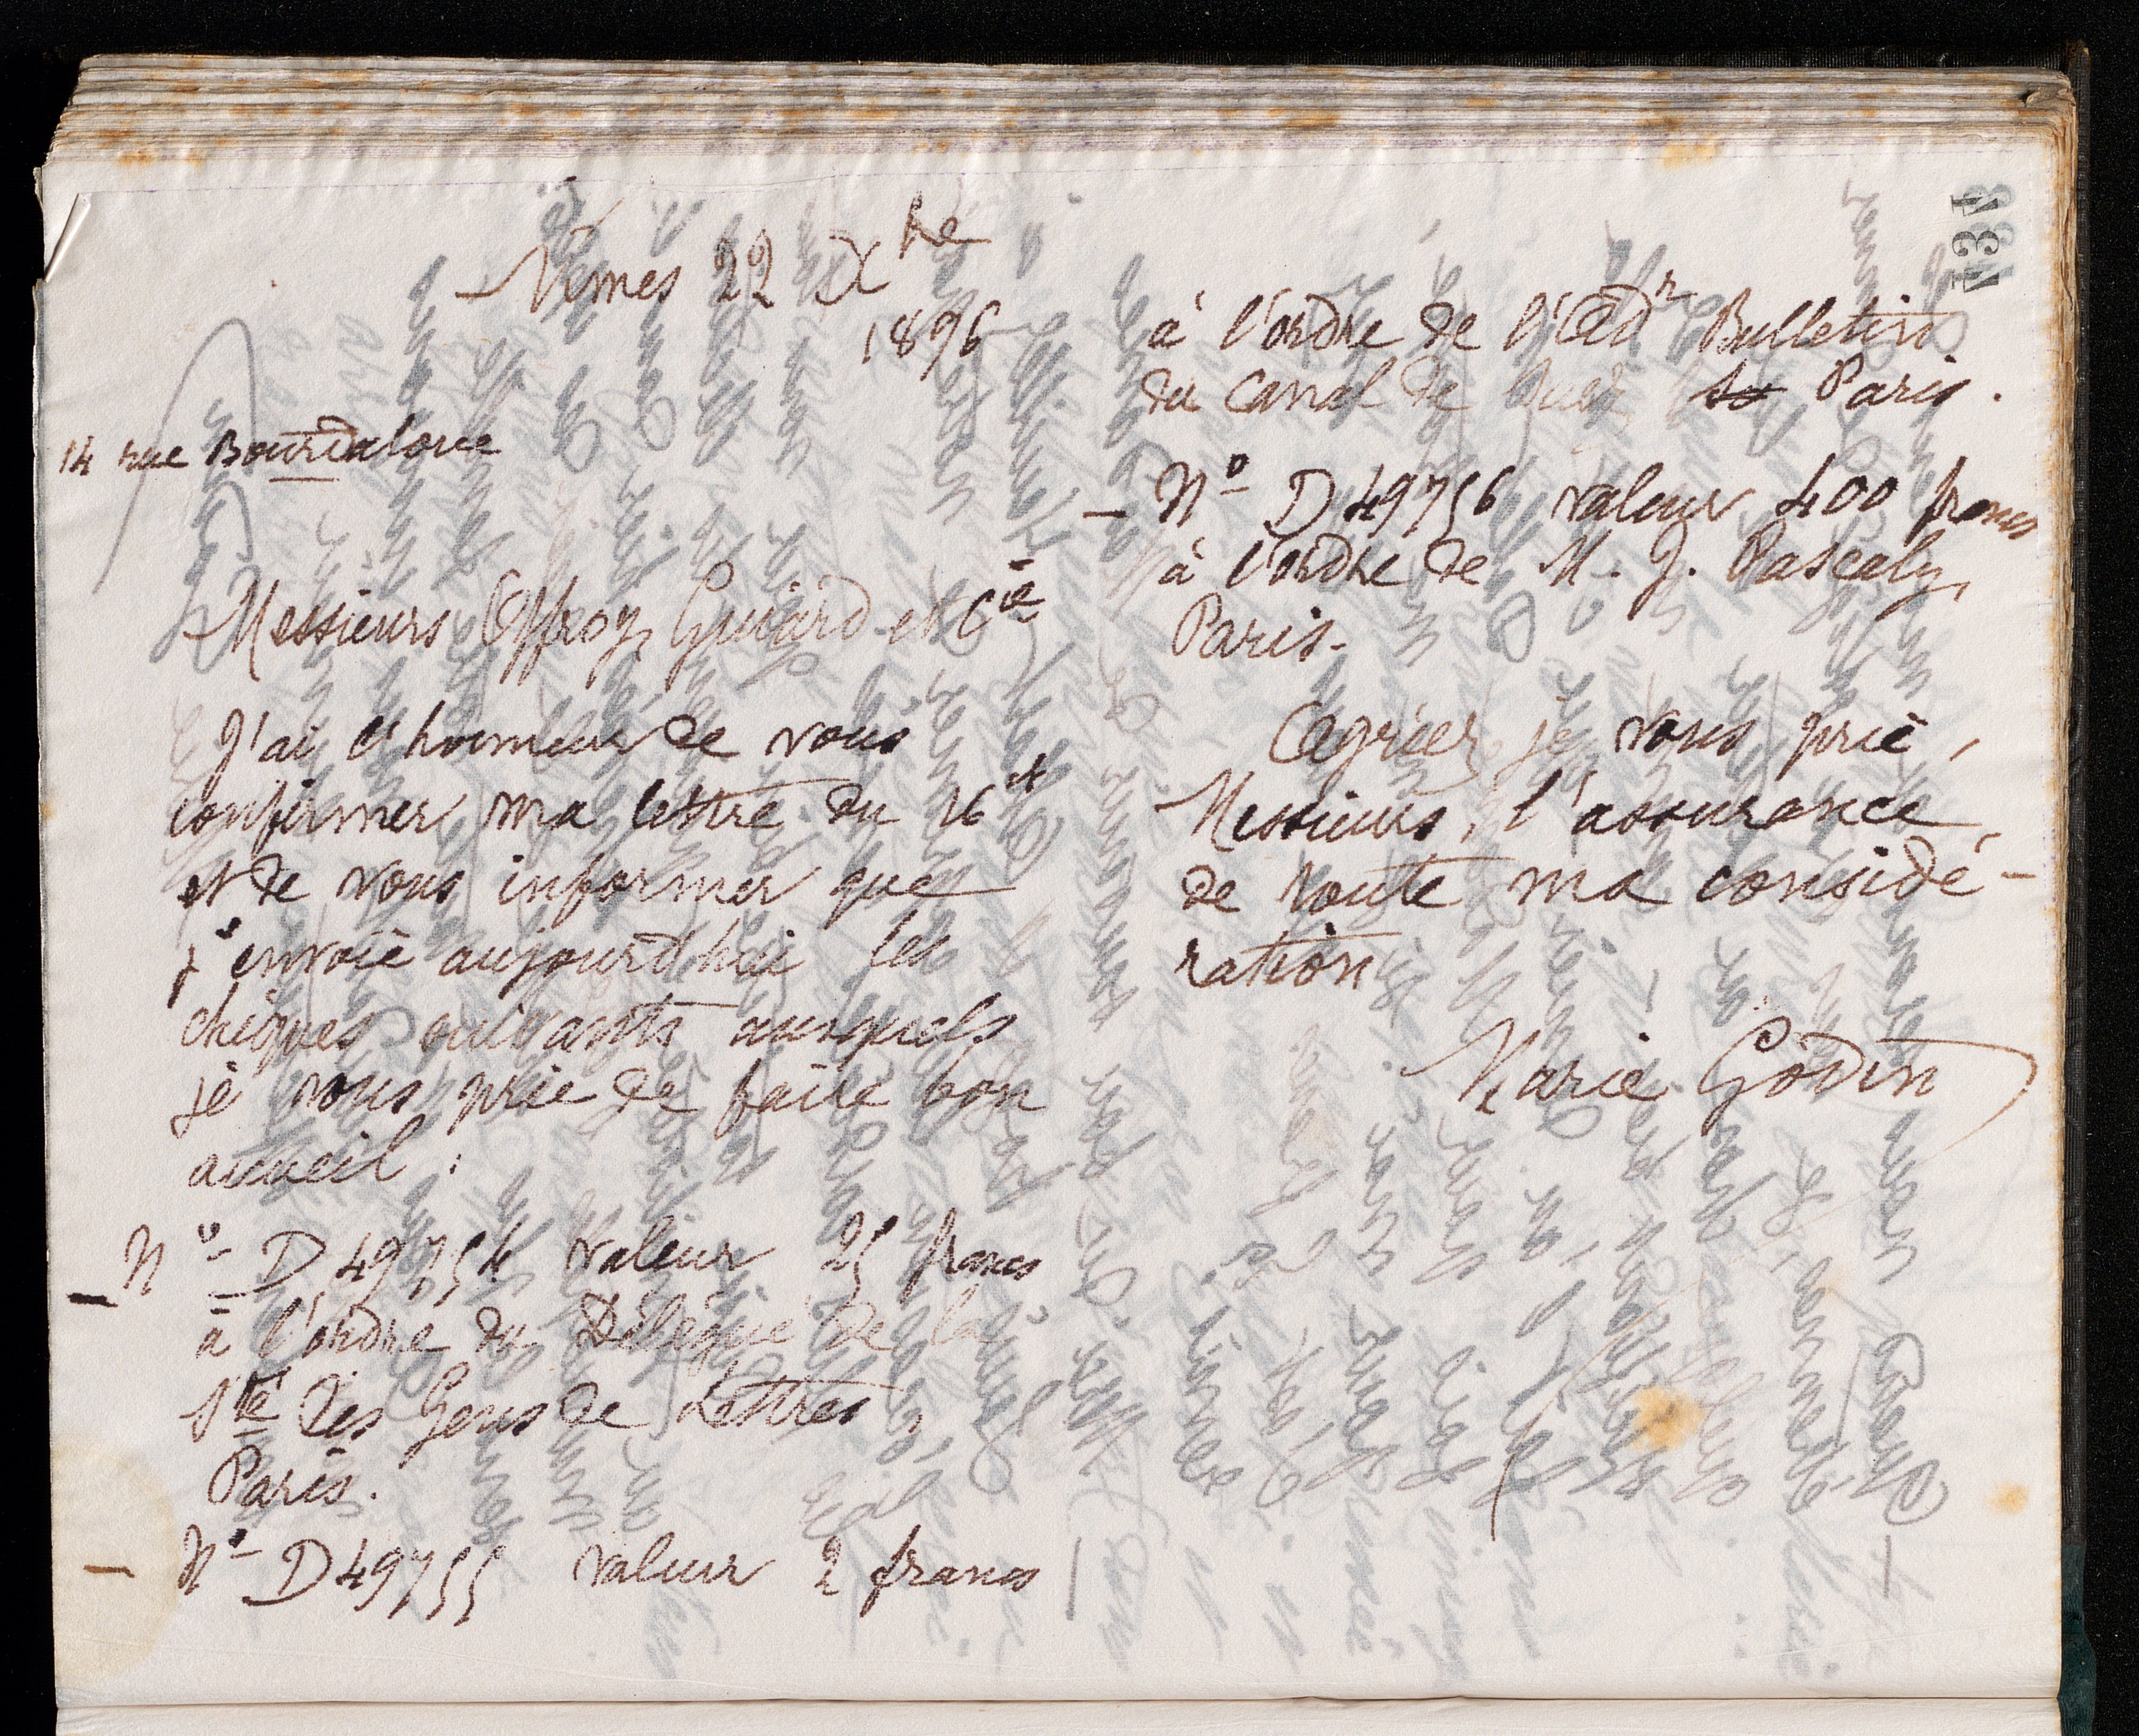 Nîmes 22 Xbre
1896
14 rue Bourdaloue
Messieurs Offroy, Guiard et Cie
J'ai l'honneur de vous
confirmer ma lettre du 16 ct
et de vous informer que
j'envoie aujourd'hui les
chèques suivants auxquels
je vous prie de faire bon
accueil :
— No D 49754 valeur 25 francs
à l'ordre du Délégué de la
Sté des Gens de Lettres,
Paris.
— No D 49755 valeur 2 francs
134
à l'ordre de l'Adr Bulletin
du Canal de Suez Paris.
— No D 49756 valeur 400 francs
à l'ordre de M. J. Pascaly,
Paris.
Agréez, je vous prie,
Messieurs, l'assurance
de toute ma considé-
ration
Marie Godin